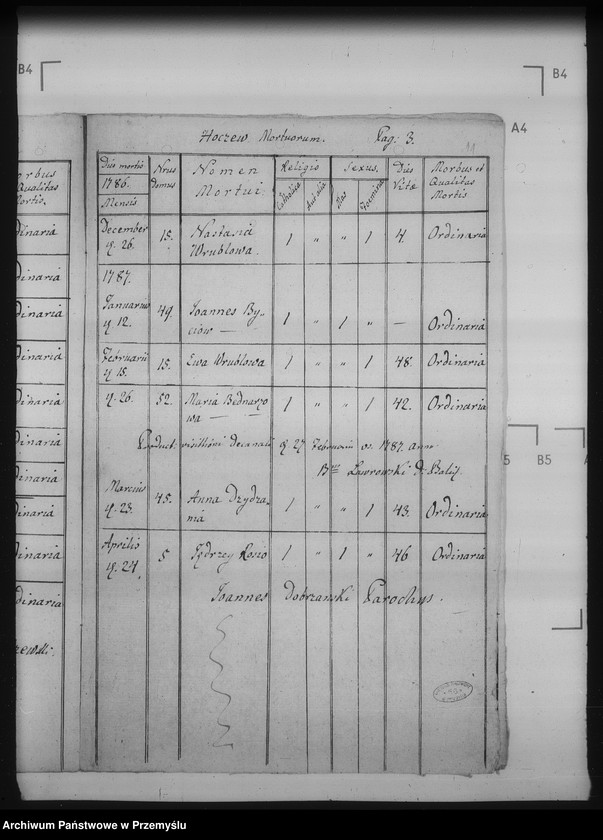 B4
B4
A4
B5
Hoczew Mortuorum. Pag: 3.
Dies mortis
1786.
Mensis
Nrus
domus
Nomen
Mortui.
Religio
Catholica
Sexus.
Mas
Foemina
Dies
Vitæ
Morbus et
Qualitas
Mortis.
December
q. 26. 15. Nastasia
Wrublowa. 1 " " 1 4. Ordinaria
1787.
Januarius
q. 12. 49. Joannes By-
ciow — 1 " 1 " — Ordinaria
Februarii
q. 15. 15. Ewa Wrublowa 1 " " 1 48. Ordinaria
q. 26. 52. Maria Bednarzo
wa — — 1 " " 1 42. Ordinaria
Product: Decanali q. 27 1787
Lawrowski
Marcius
q. 23. 45. Anna Dzydza-
nia 1 " " 1 43. Ordinaria
Aprilis
q. 24. 5 Jędrzey Kosio 1 " 1 " 46 Ordinaria
Joannes Dobrzanski Parochus.
orbus
Qualitas
Mortis.
dinaria
dinaria
dinaria
dinaria
dinaria
dinaria
dinaria
dinaria
dinaria
Archiwum Państwowe w Przemyślu